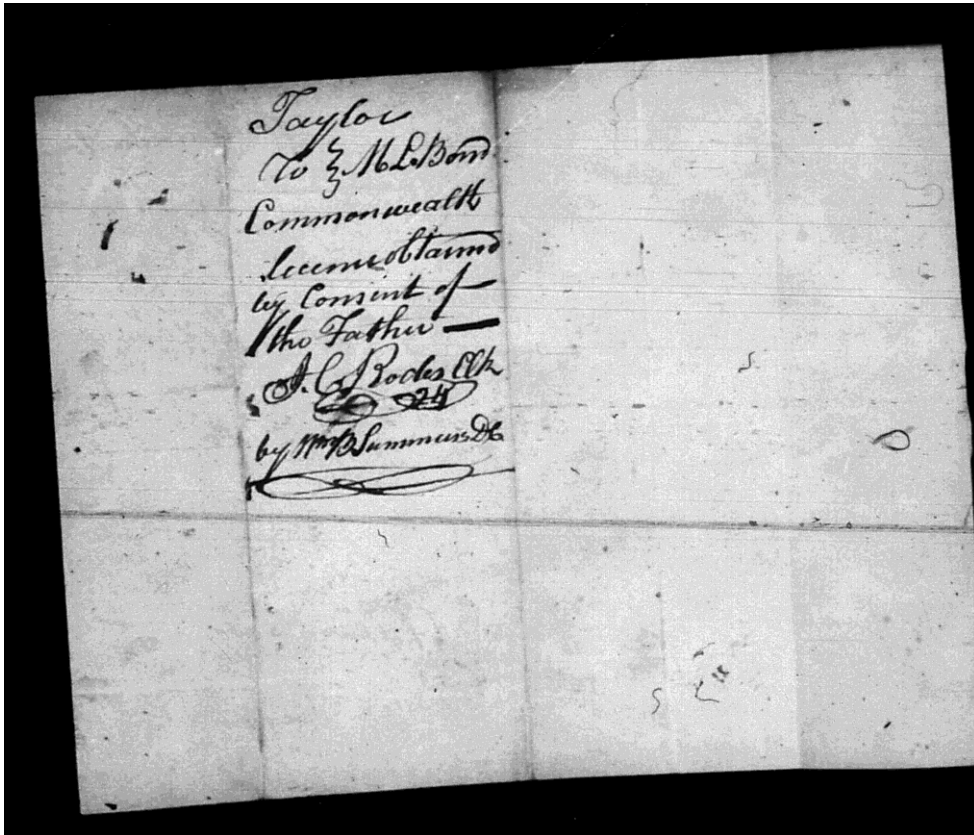 Taylor
To } M L Bond
Commonwealth
licence obtained
by Consent of
the Father
J. C. Rodes Clk
24
by Wm B Summers DC